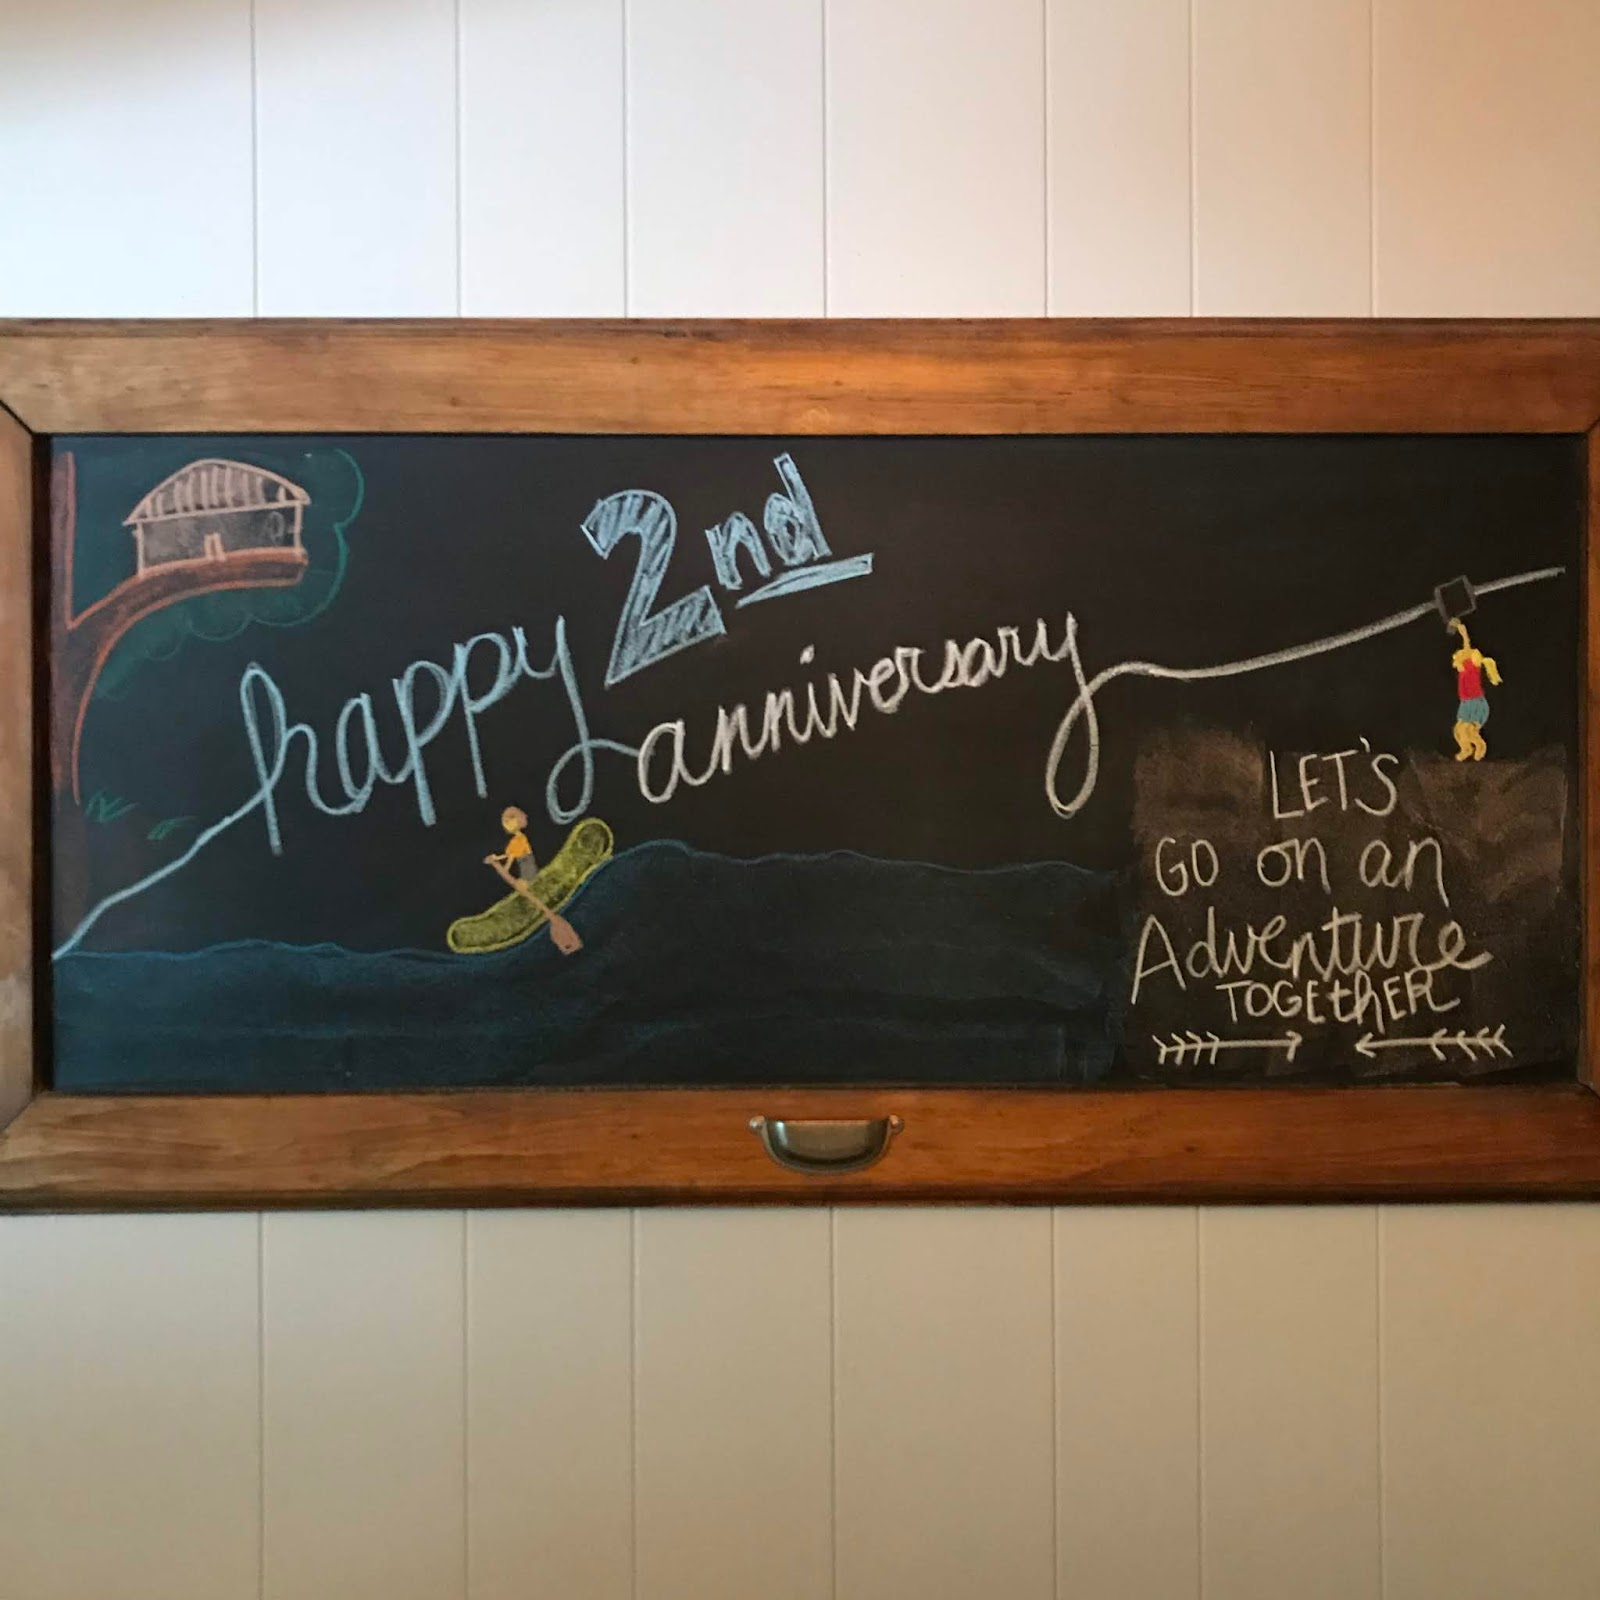 happy 2nd
anniversary
LET'S
GO on an
Adventure
TOGEthER